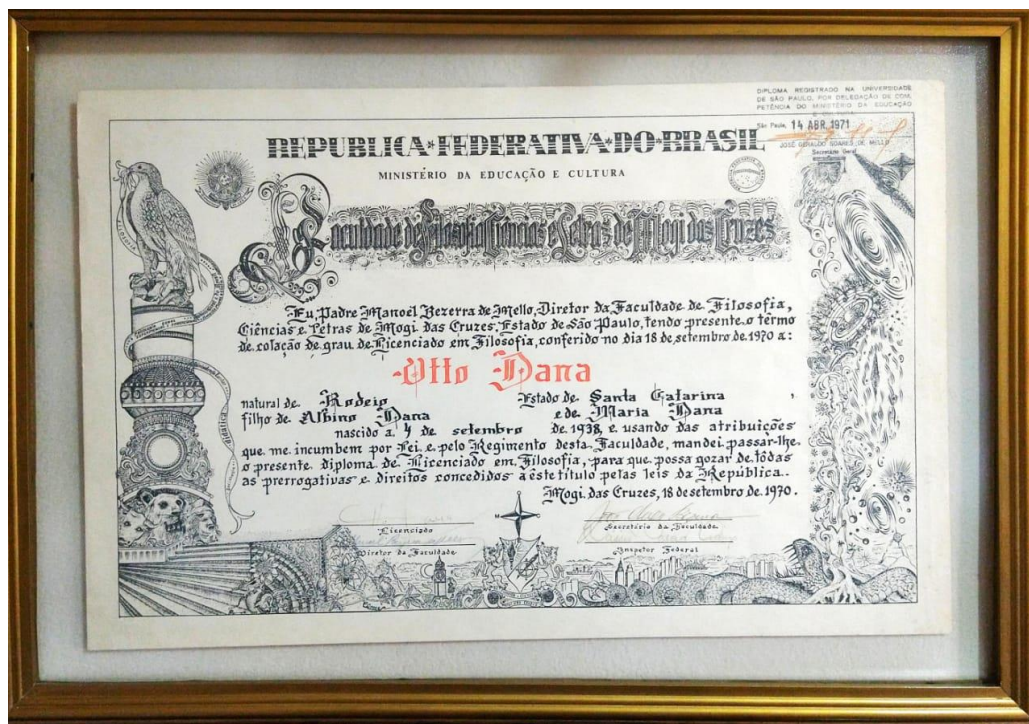 DIPLOMA REGISTRADO NA UNIVERSIDADE
DE SÃO PAULO, POR DELEGAÇÃO DE COM
PETÊNCIA DO MINISTÉRIO DA EDUCAÇÃO
São Paulo, 14 ABR. 1971
JOSÉ GERALDO SOARES DE MELLO
Secretário Geral
REPUBLICA*FEDERATIVA*DO*BRASIL
MINISTÉRIO DA EDUCAÇÃO E CULTURA
Faculdade de Filosofia Ciências e Letras de Mogi das Cruzes
Eu, Padre Manoel Bezerra de Mello, Diretor da Faculdade de Filosofia,
Ciências e Letras de Mogi das Cruzes, Estado de São Paulo, tendo presente o termo
de colação de grau de Licenciado em Filosofia, conferido no dia 18 de setembro de 1970 a:
Otto Dana
natural de Rodeio Estado de Santa Catarina,
filho de Albino Dana e de Maria Dana
nascido a 4 de setembro de 1938, e usando das atribuições
que me incumbem por Lei e pelo Regimento desta Faculdade, mandei passar-lhe
o presente diploma de Licenciado em Filosofia, para que possa gozar de tôdas
as prerrogativas e direitos concedidos a êste título pelas leis da República.
Mogi das Cruzes, 18 de setembro de 1970.
Licenciado
Secretário da Faculdade
Diretor da Faculdade
Inspetor Federal
didática